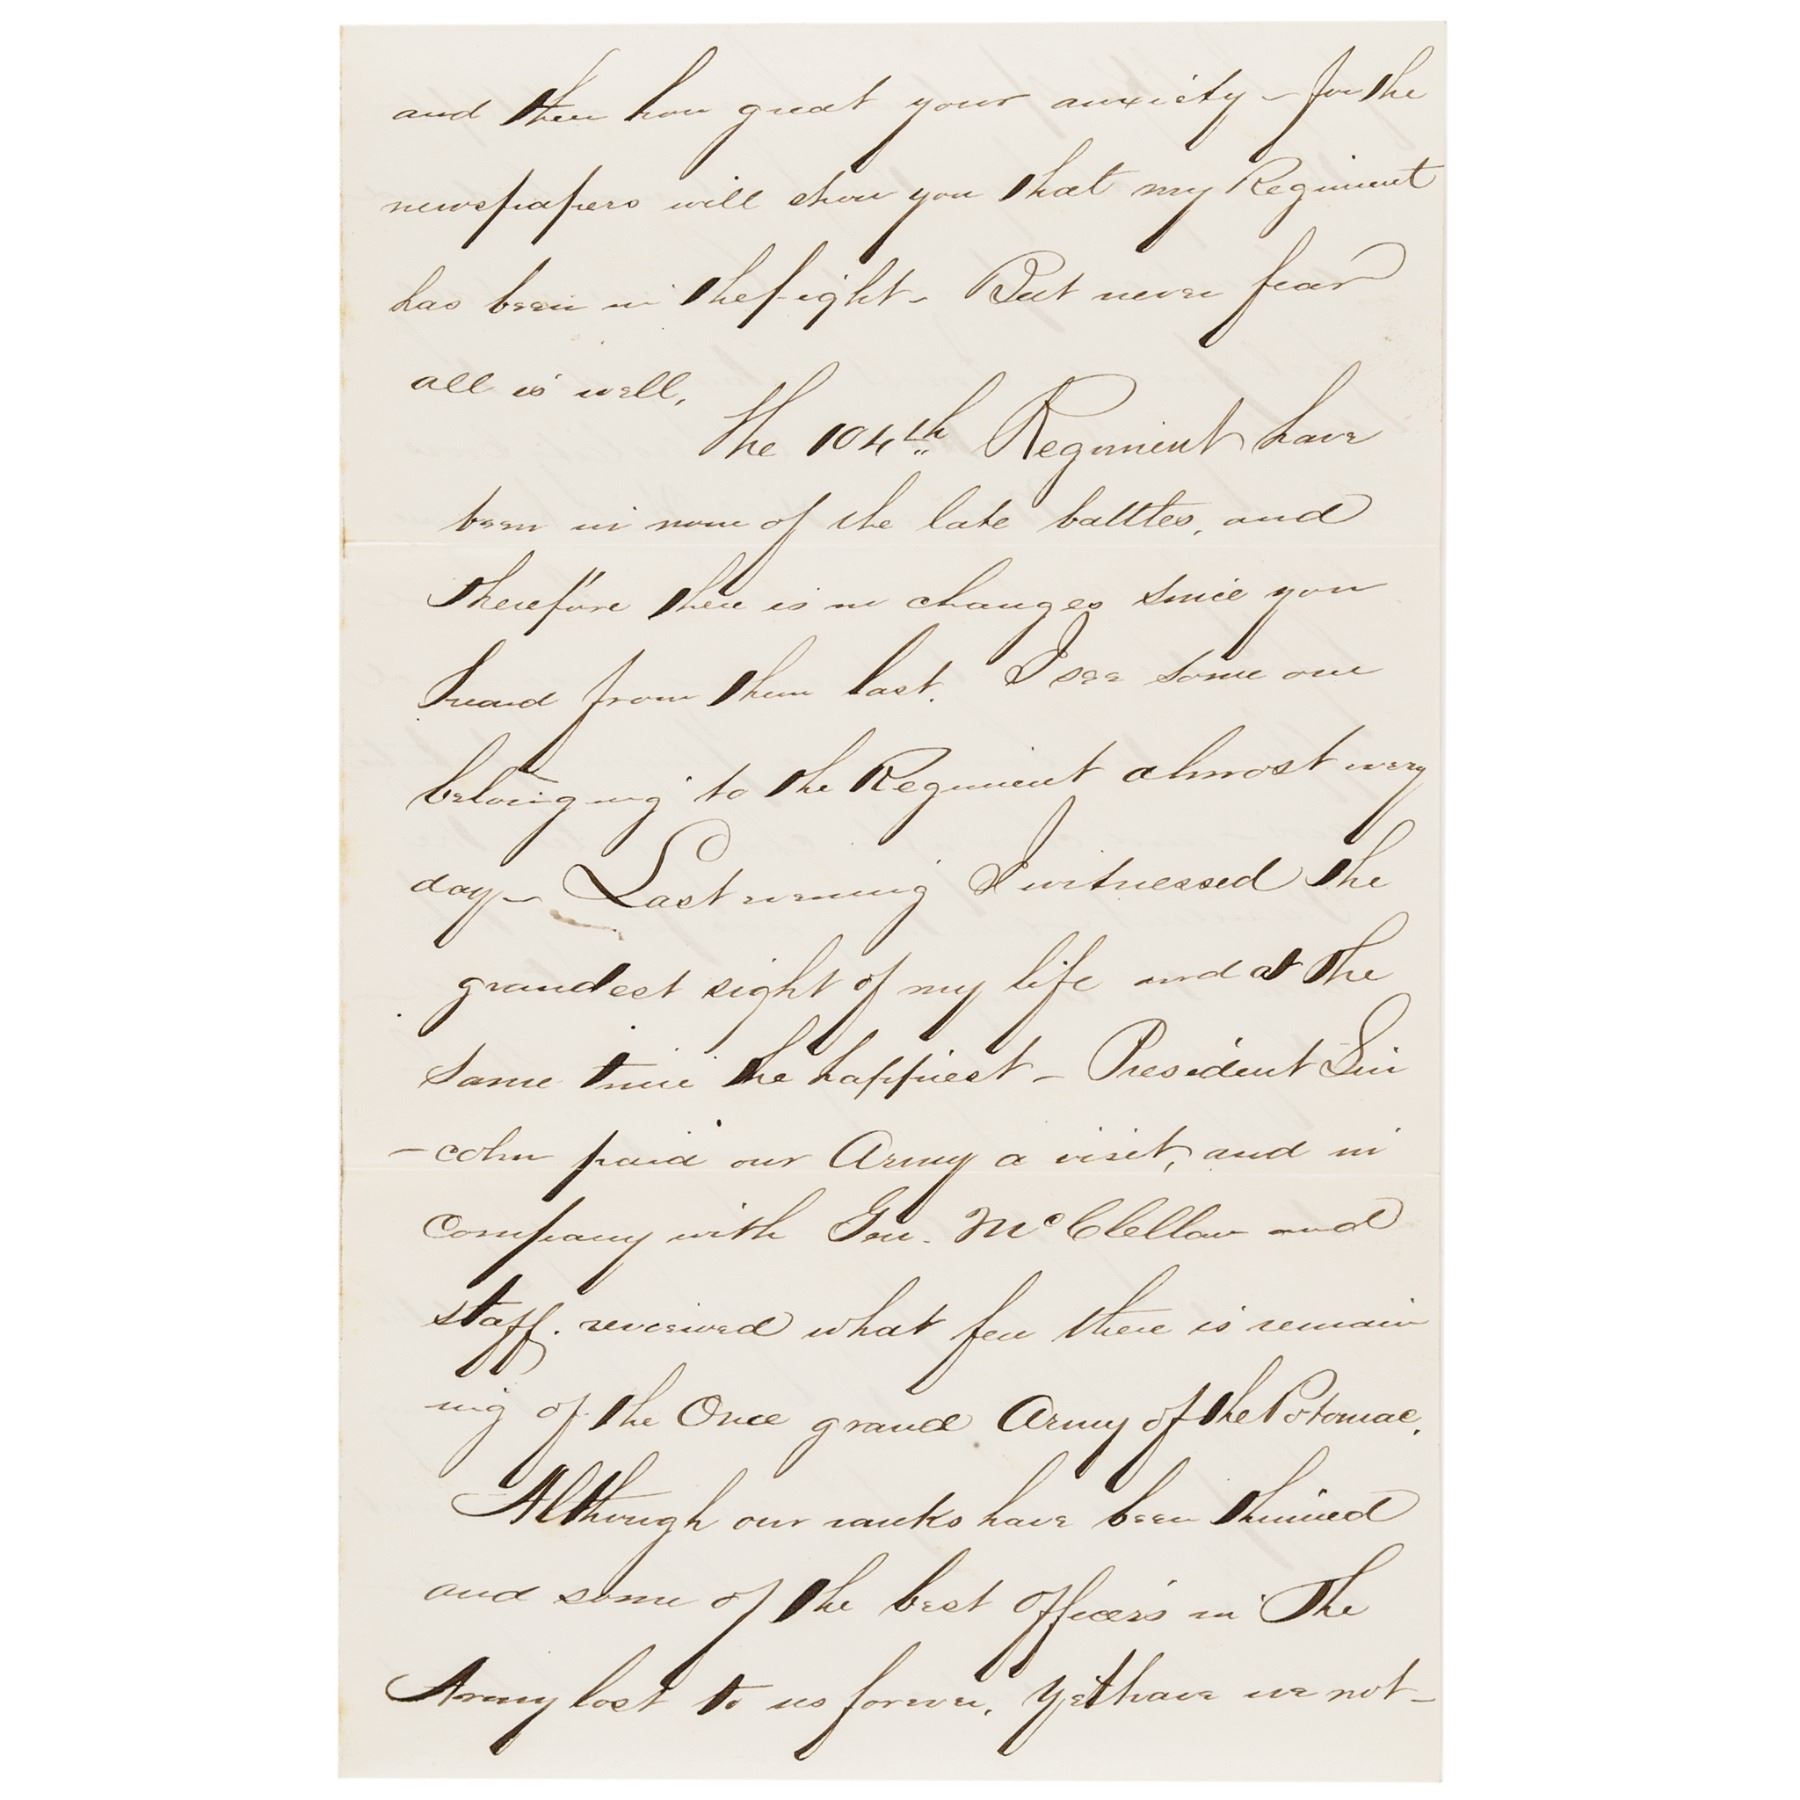 and then how great your anxiety - for the
newspapers will show you that my Regiment
has been in the fight - But never fear
all is well.
The 104th Regiment have
been in none of the late battles, and
therefore there is no changes since you
heard from them last. I see some one
belonging to the Regiment almost every
day - Last evening I witnessed the
grandest sight of my life and at the
same time the happiest - President Lin
- coln paid our Army a visit, and in
company with Gen. McClellan and
staff. reviewed what few there is remain
ing of the Once grand Army of the Potomac.
Although our ranks have been thinned
and some of the best officers in the
Army lost to us forever, yet have we not -